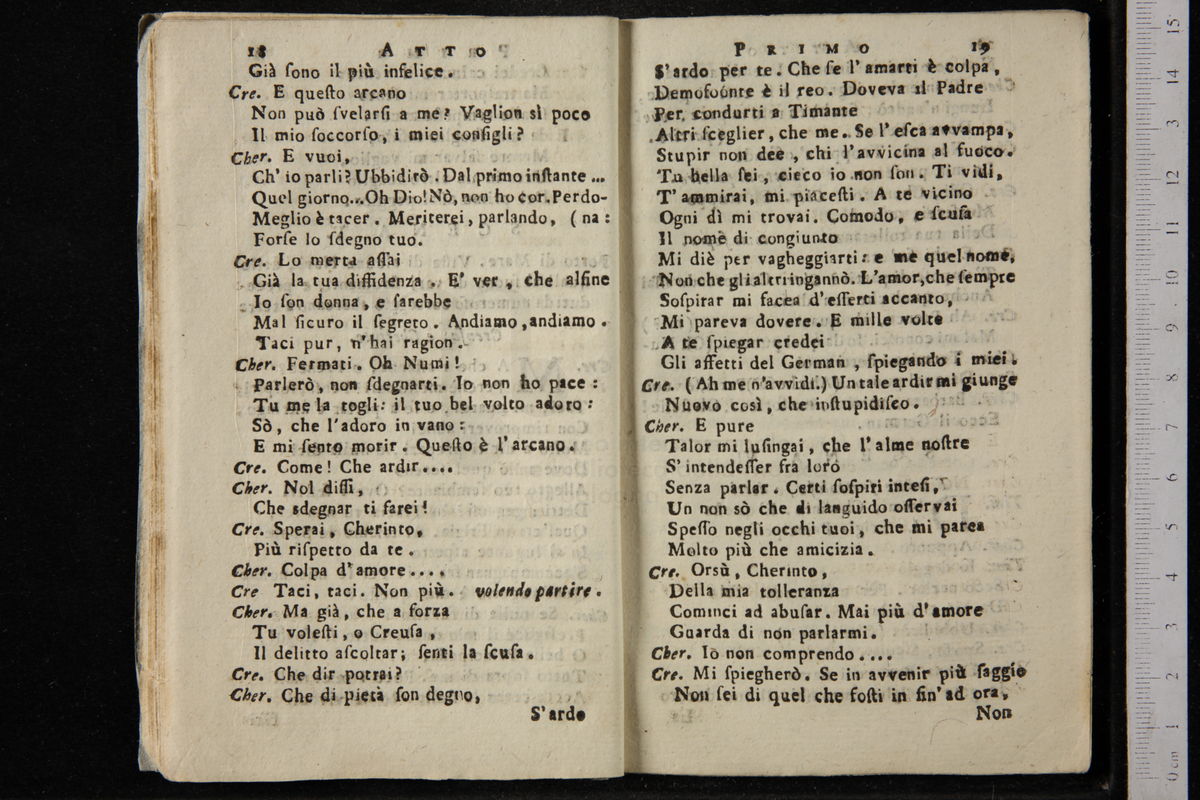 18 ATTO
Già ſono il più infelice.
Cre. E queſto arcano
Non può ſvelarſi a me? Vaglion sì poco
Il mio ſoccorſo, i miei conſigli?
Cher. E vuoi,
Ch' io parli? Ubbidirò. Dal primo inſtante ...
Quel giorno... Oh Dio! Nò, non ho cor. Perdo-
Meglio è tacer. Meriterei, parlando, (na:
Forſe lo ſdegno tuo.
Cre. Lo merta aſſai
Già la tua diffidenza. E' ver, che alfine
Io ſon donna, e ſarebbe
Mal ſicuro il ſegreto. Andiamo, andiamo.
Taci pur, n' hai ragion.
Cher. Fermati. Oh Numi!
Parlerò, non ſdegnarti. Io non ho pace:
Tu me la togli: il tuo bel volto adoro:
Sò, che l' adoro in vano:
E mi ſento morir. Queſto è l' arcano.
Cre. Come! Che ardir....
Cher. Nol diſſi,
Che sdegnar ti farei!
Cre. Sperai, Cherinto,
Più riſpetto da te.
Cher. Colpa d' amore....
Cre Taci, taci. Non più. volendo partire.
Cher. Ma già, che a forza
Tu voleſti, o Creuſa,
Il delitto aſcoltar; ſenti la ſcuſa.
Cre. Che dir potrai?
Cher. Che di pietà ſon degno,
S' ardo
PRIMO 19
S' ardo per te. Che ſe l' amarti è colpa,
Demofoónte è il reo. Doveva il Padre
Per condurti a Timante
Altri ſceglier, che me. Se l' eſca avvampa,
Stupir non dee, chi l' avvicina al fuoco.
Tu bella ſei, cieco io non ſon. Ti vidi,
T' ammirai, mi piaceſti. A te vicino
Ogni dì mi trovai. Comodo, e ſcuſa
Il nome di congiunto
Mi diè per vagheggiarti: e me quel nome,
Non che gli altri ingannò. L' amor, che ſempre
Soſpirar mi facea d' eſſerti accanto,
Mi pareva dovere. E mille volte
A te ſpiegar credei
Gli affetti del German, ſpiegando i miei.
Cre. (Ah me n' avvidi.) Un tale ardir mi giunge
Nuovo così, che inſtupidiſco.
Cher. E pure
Talor mi luſingai, che l' alme noſtre
S' intendeſſer fra loro
Senza parlar. Certi ſoſpiri inteſi,
Un non sò che di languido oſſervai
Speſſo negli occhi tuoi, che mi parea
Molto più che amicizia.
Cre. Orsù, Cherinto,
Della mia tolleranza
Cominci ad abuſar. Mai più d' amore
Guarda di non parlarmi.
Cher. Io non comprendo....
Cre. Mi ſpiegherò. Se in avvenir più ſaggio
Non ſei di quel che foſti in fin' ad ora,
Non
15
14
3
12
11
10
9
8
7
6
5
4
3
2
1
0 cm